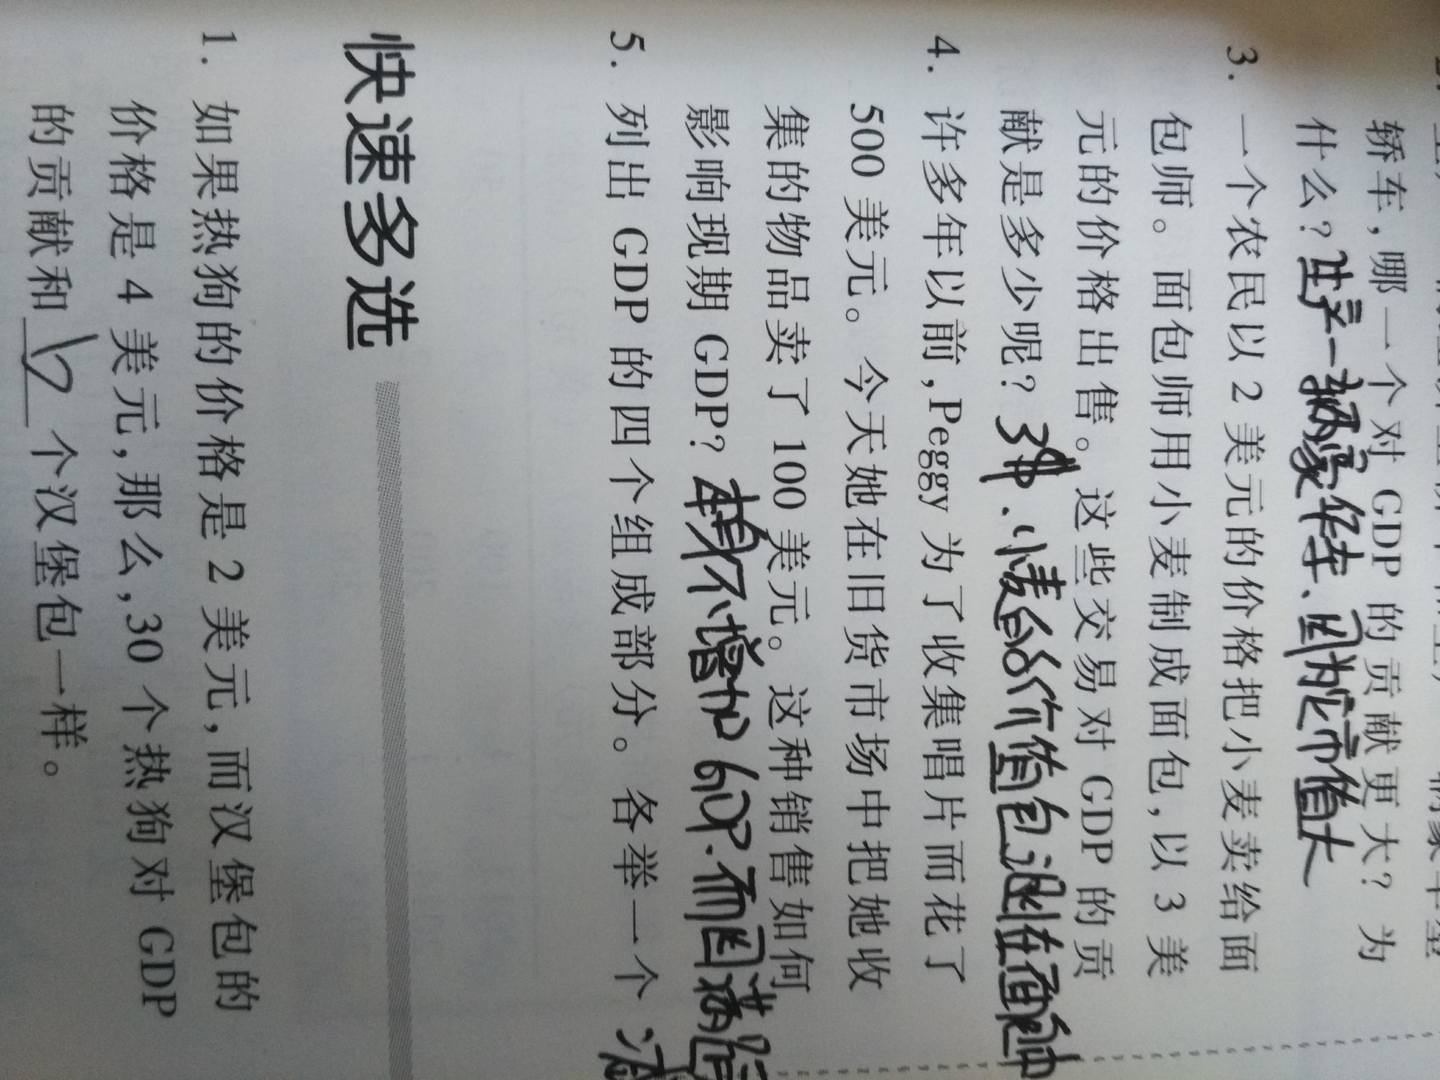 轿车,哪一个对 GDP 的贡献更大? 为
什么? 生产一辆豪华车、因为它市值大
3. 一个农民以 2 美元的价格把小麦卖给面
包师。面包师用小麦制成面包,以 3 美
元的价格出售。这些交易对 GDP 的贡
献是多少呢? 3$.小麦的价值包涵在面包中
4. 许多年以前,Peggy 为了收集唱片而花了
500 美元。今天她在旧货市场中把她收
集的物品卖了 100 美元。这种销售如何
影响现期 GDP? 本身不增加 GDP.而因
5. 列出 GDP 的四个组成部分。各举一个
快速多选
1. 如果热狗的价格是 2 美元,而汉堡包的
价格是 4 美元,那么,30 个热狗对 GDP
的贡献和 15 个汉堡包一样。